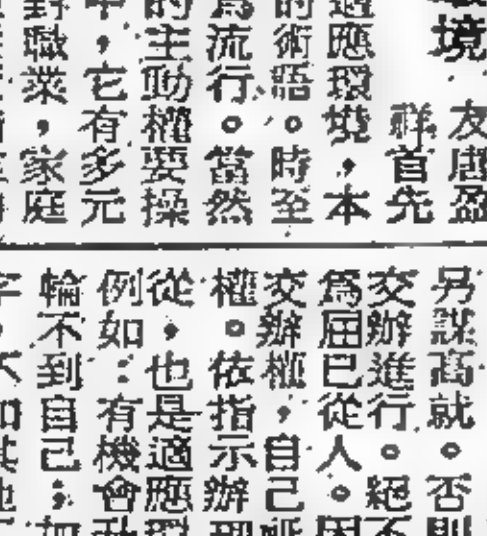 境
友唐盈
群首先
適應環境，本
的術語。時至
為流行。當然
的主動權要操
中，它有多元
對職業，家庭
另謀高就。否則
交辦進行。絕不
為屈已從人。因
交辦權，自己
權。依指示辦理
從，也是適應環
例如：有機會
輪不到自己；如